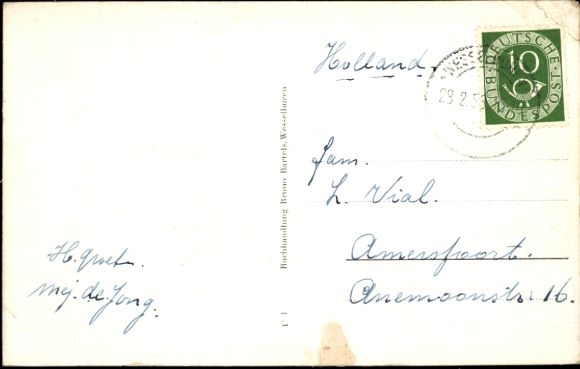 Holland.
DEUTSCHE
10
BUNDESPOST
23.2.53
Fam.
L. Vial.
Amersfoort.
Anemoonstr. 16.
H. groet.
mej. de Jong.
Buchhandlung Bruno Bartels, Wesselburen
U 1